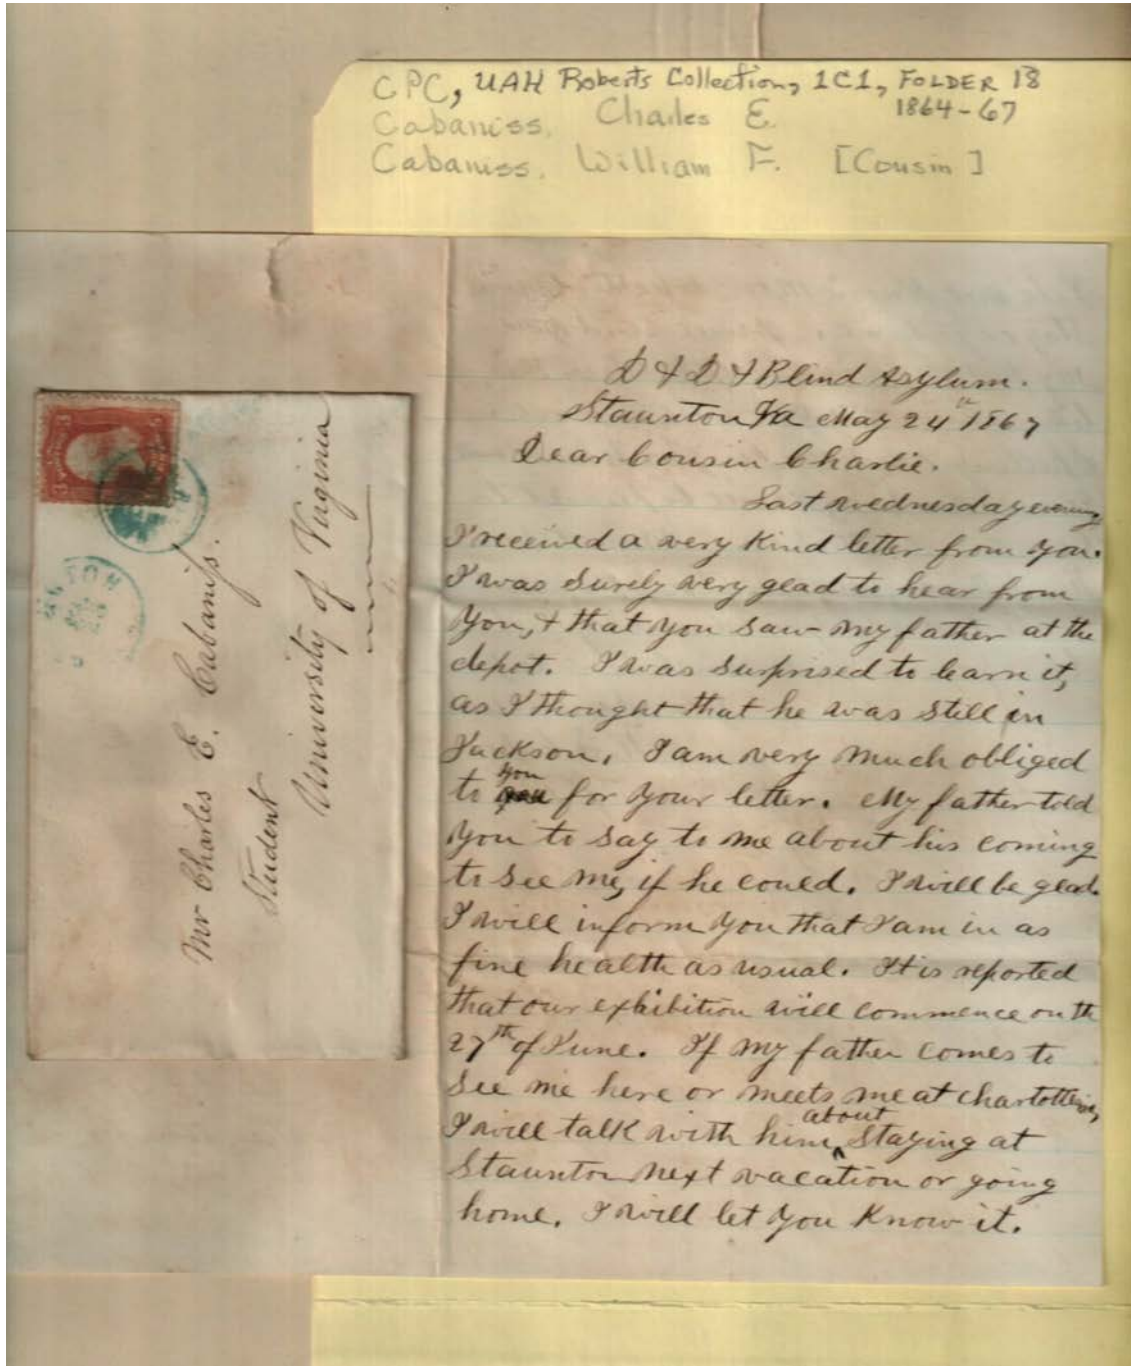 CPC, UAH Roberts Collection, 1C1, FOLDER 18
1864-67
Cabaniss, Charles E.
Cabaniss, William F. [Cousin]
D & D & Blind Asylum.
Staunton Va May 24th 1867
Dear Cousin Charlie.
Last Wednesday evening
I received a very kind letter from you.
I was surely very glad to hear from
you, & that you saw my father at the
depot. I was surprised to learn it,
as I thought that he was still in
Jackson. I am very much obliged
to you for your letter. My father told
you to say to me about his coming
to see me, if he could. I will be glad.
I will inform you that I am in as
fine health as usual. It is reported
that our exhibition will commence on th
27th of June. If my father comes to
see me here or meets me at Charlottesville,
I will talk with him about staying at
Staunton next vacation or going
home. I will let you know it.
Mr Charles E. Cabaniss.
Student
University of Virginia